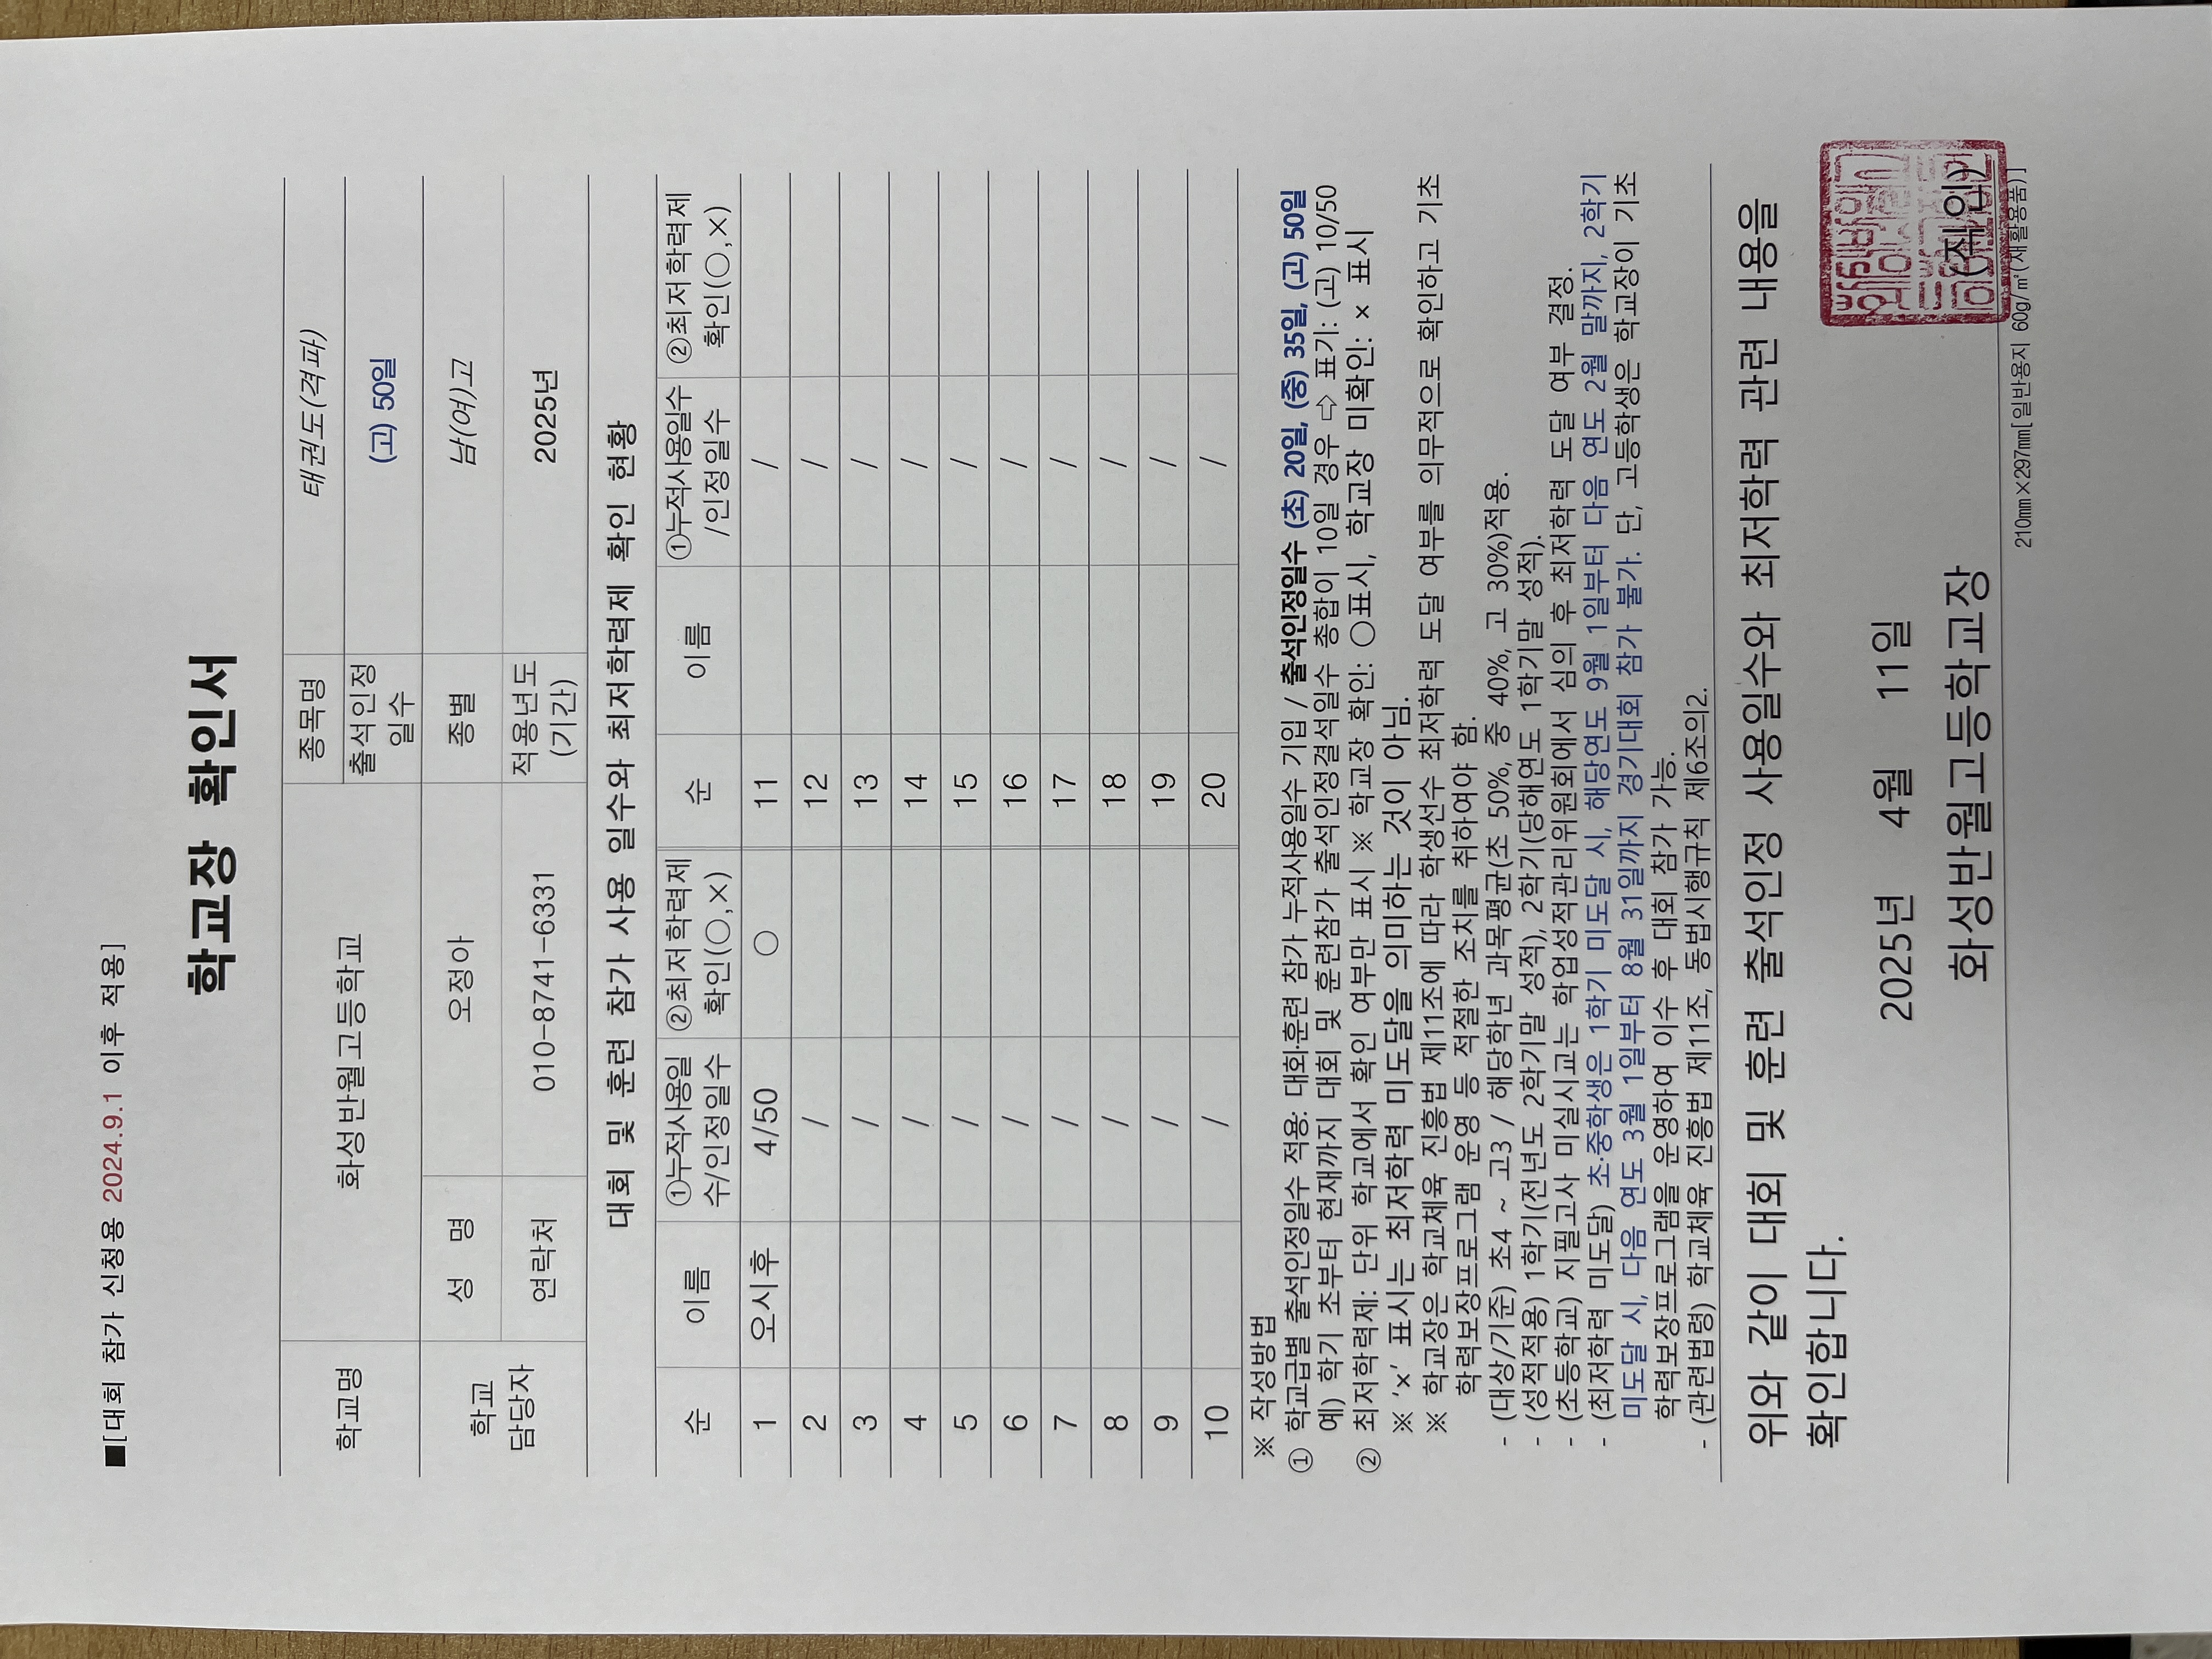 ■[대회 참가 신청용 2024.9.1 이후 적용]
학교장 확인서
학교명 화성반월고등학교 종목명 태권도(격파)
출석인정일수 (고) 50일
학교 담당자 성 명 오정아 종별 남(여)고
연락처 010-8741-6331 적용년도(기간) 2025년
대회 및 훈련 참가 사용 일수와 최저학력제 확인 현황
순 이름 ①누적사용일수/인정일수 ②최저학력제 확인(○,×) 순 이름 ①누적사용일수/인정일수 ②최저학력제 확인(○,×)
1 오시후 4/50 ○ 11 /
2 / 12 /
3 / 13 /
4 / 14 /
5 / 15 /
6 / 16 /
7 / 17 /
8 / 18 /
9 / 19 /
10 / 20 /
※ 작성방법
① 학교급별 출석인정일수 적용: 대회·훈련 참가 누적사용일수 기입 / 출석인정일수 (초) 20일, (중) 35일, (고) 50일
예) 학기 초부터 현재까지 대회 및 훈련참가 출석인정결석일수 총합이 10일 경우 ⇨ 표기: (고) 10/50
② 최저학력제: 단위 학교에서 확인 여부만 표시 ※ 학교장 확인: ○표시, 학교장 미확인: × 표시
※ ‘×’ 표시는 최저학력 미도달을 의미하는 것이 아님.
※ 학교장은 학교체육 진흥법 제11조에 따라 학생선수 최저학력 도달 여부를 의무적으로 확인하고 기초
학력보장프로그램 운영 등 적절한 조치를 취하여야 함.
- (대상/기준) 초4 ~ 고3 / 해당학년 과목평균(초 50%, 중 40%, 고 30%)적용.
- (성적적용) 1학기(전년도 2학기말 성적), 2학기(당해연도 1학기말 성적).
- (초등학교) 지필고사 미실시교는 학업성적관리위원회에서 심의 후 최저학력 도달 여부 결정.
- (최저학력 미도달) 초·중학생은 1학기 미도달 시, 해당연도 9월 1일부터 다음 연도 2월 말까지, 2학기
미도달 시, 다음 연도 3월 1일부터 8월 31일까지 경기대회 참가 불가. 단, 고등학생은 학교장이 기초
학력보장프로그램을 운영하여 이수 후 대회 참가 가능.
- (관련법령) 학교체육 진흥법 제11조, 동법시행규칙 제6조의2.
위와 같이 대회 및 훈련 출석인정 사용일수와 최저학력 관련 내용을
확인합니다.
2025년 4월 11일
화성반월고등학교장 (직인)
210㎜×297㎜[일반용지 60g/㎡(재활용품)]